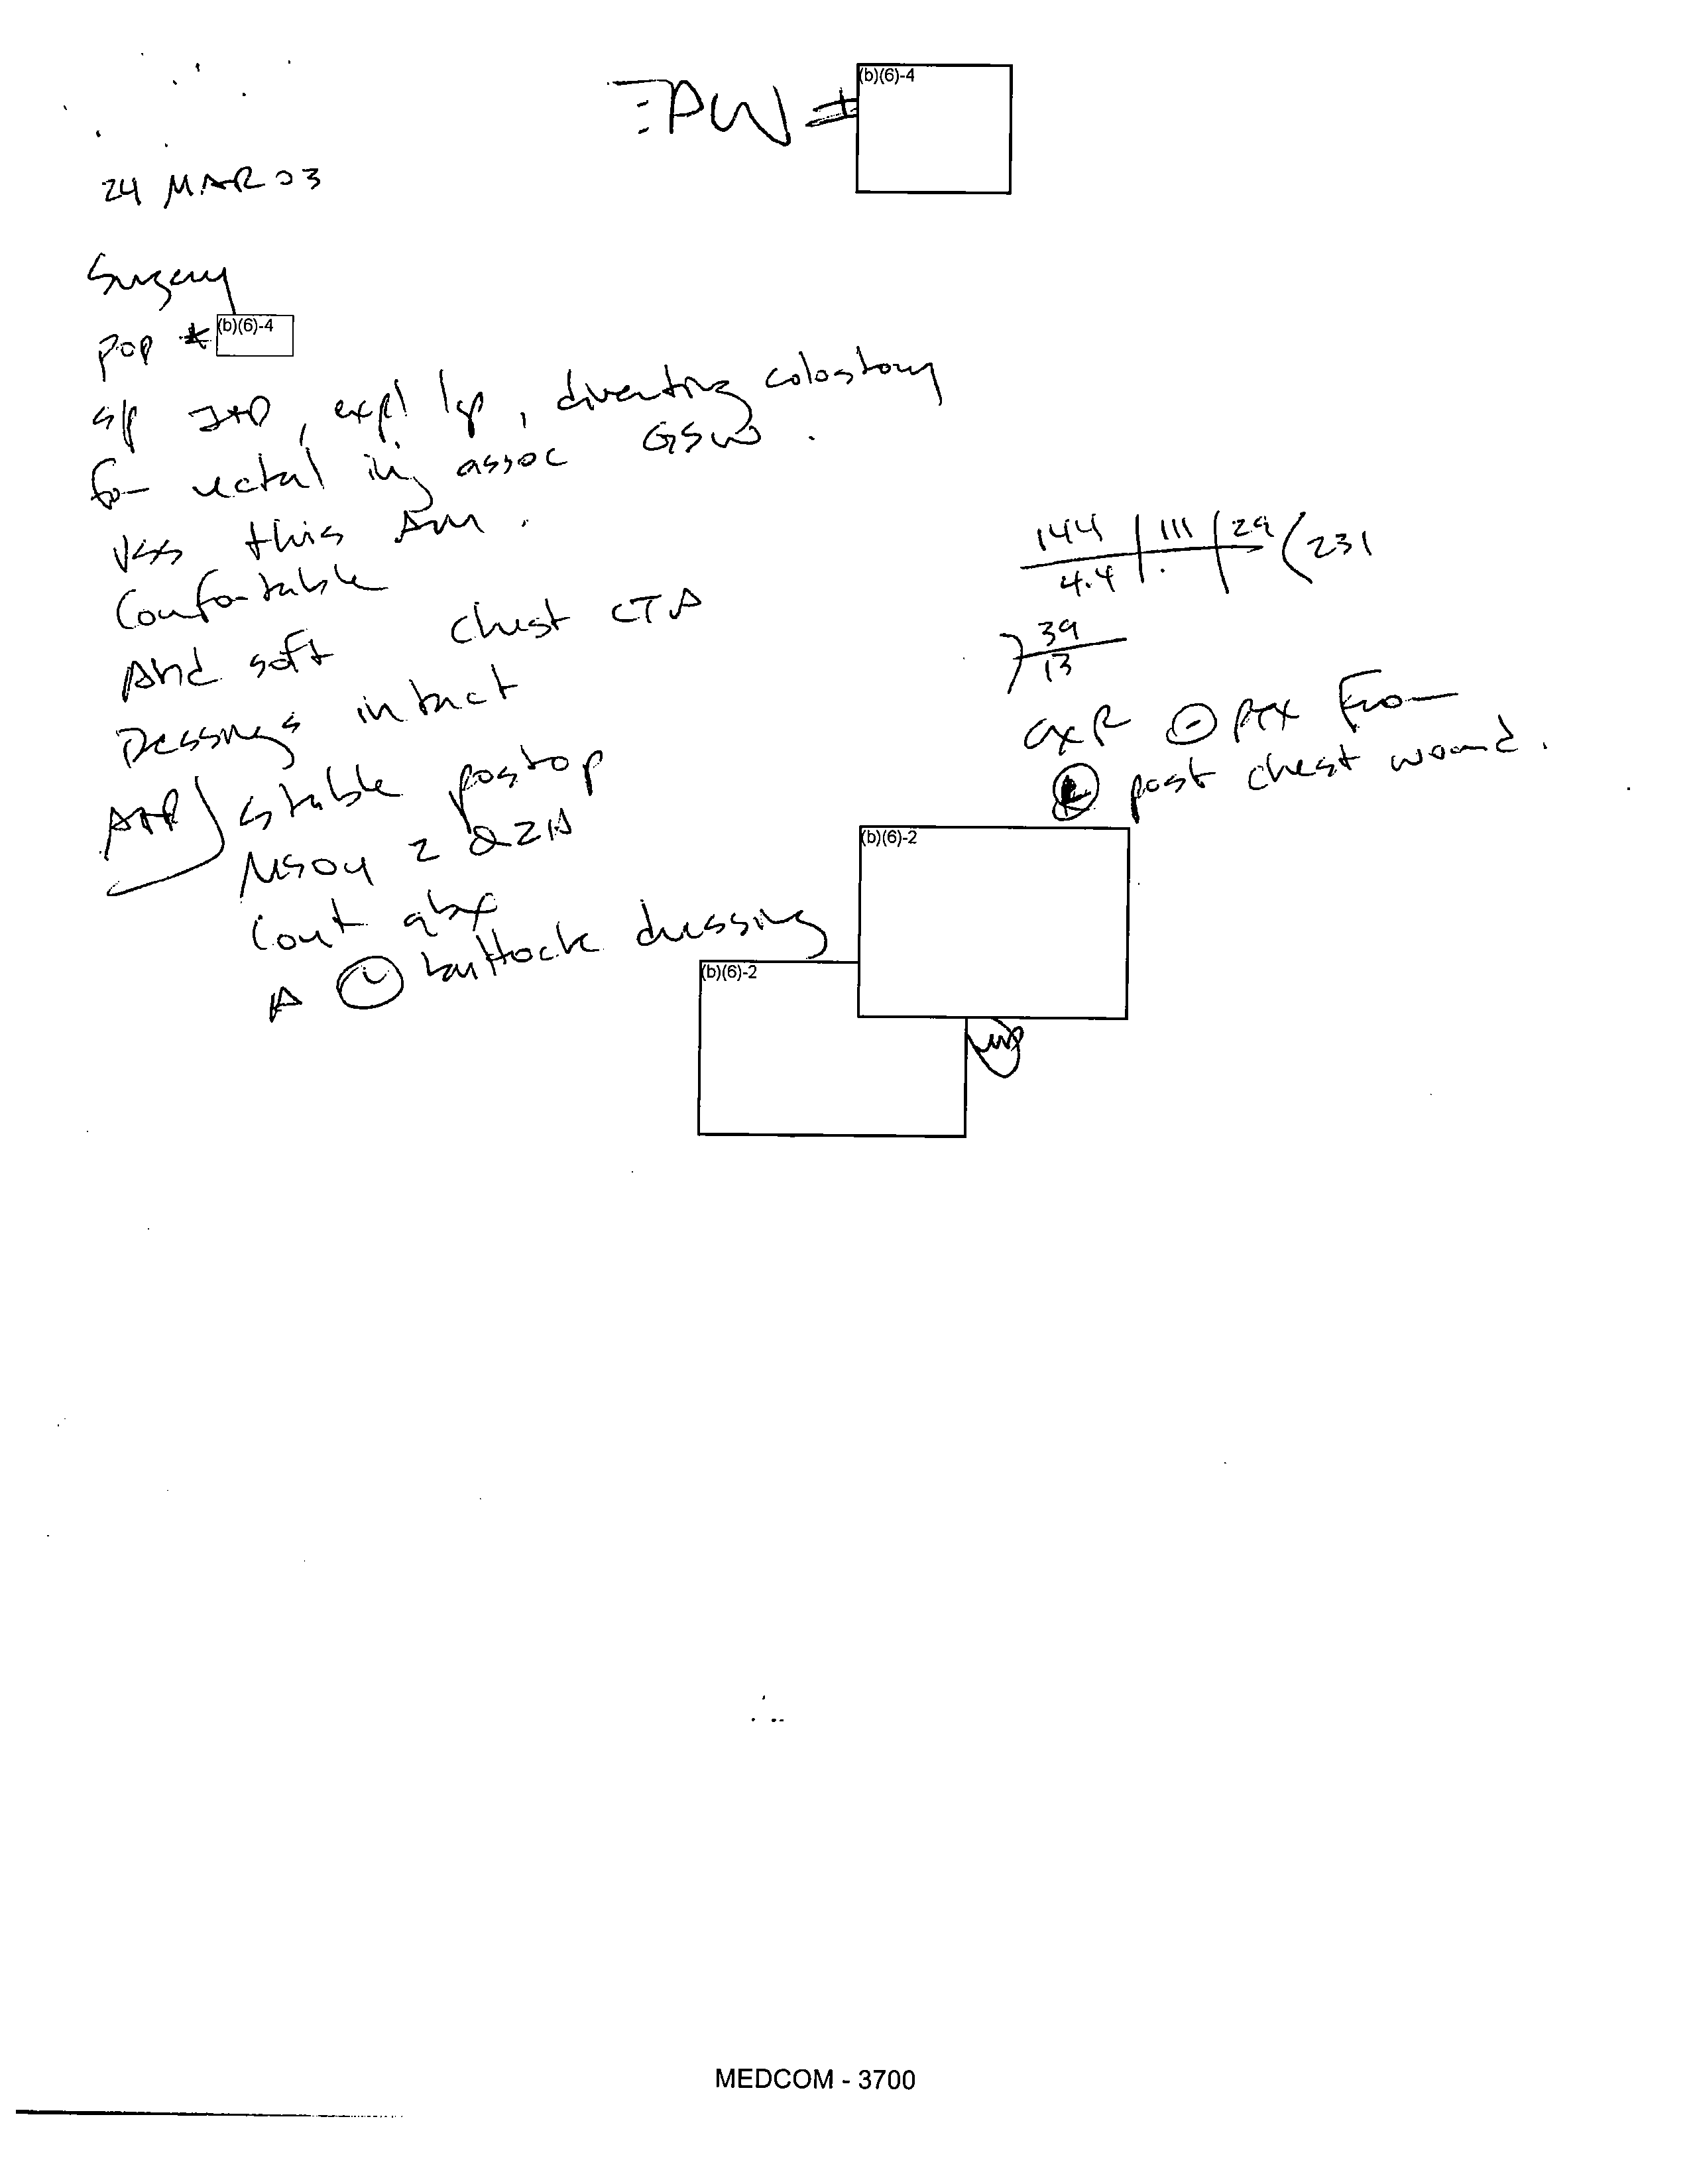 EPW # (b)(6)-4
24 MAR 03
Surgery
POP # (b)(6)-4
s/p I+D, expl lap, diverting colostomy
for rectal inj assoc GSW.
VSS this AM.
Comfortable
Abd soft Chest CTA
Dressings intact
A+P) stable postop
MSO4 2 Q2H
Cont abx
Δ L buttock dressing
144 | 111 | 29 ( 231
4.4
) 39
13
CXR ⊖ PTX From
post chest wound.
(b)(6)-2
(b)(6)-2
MEDCOM - 3700